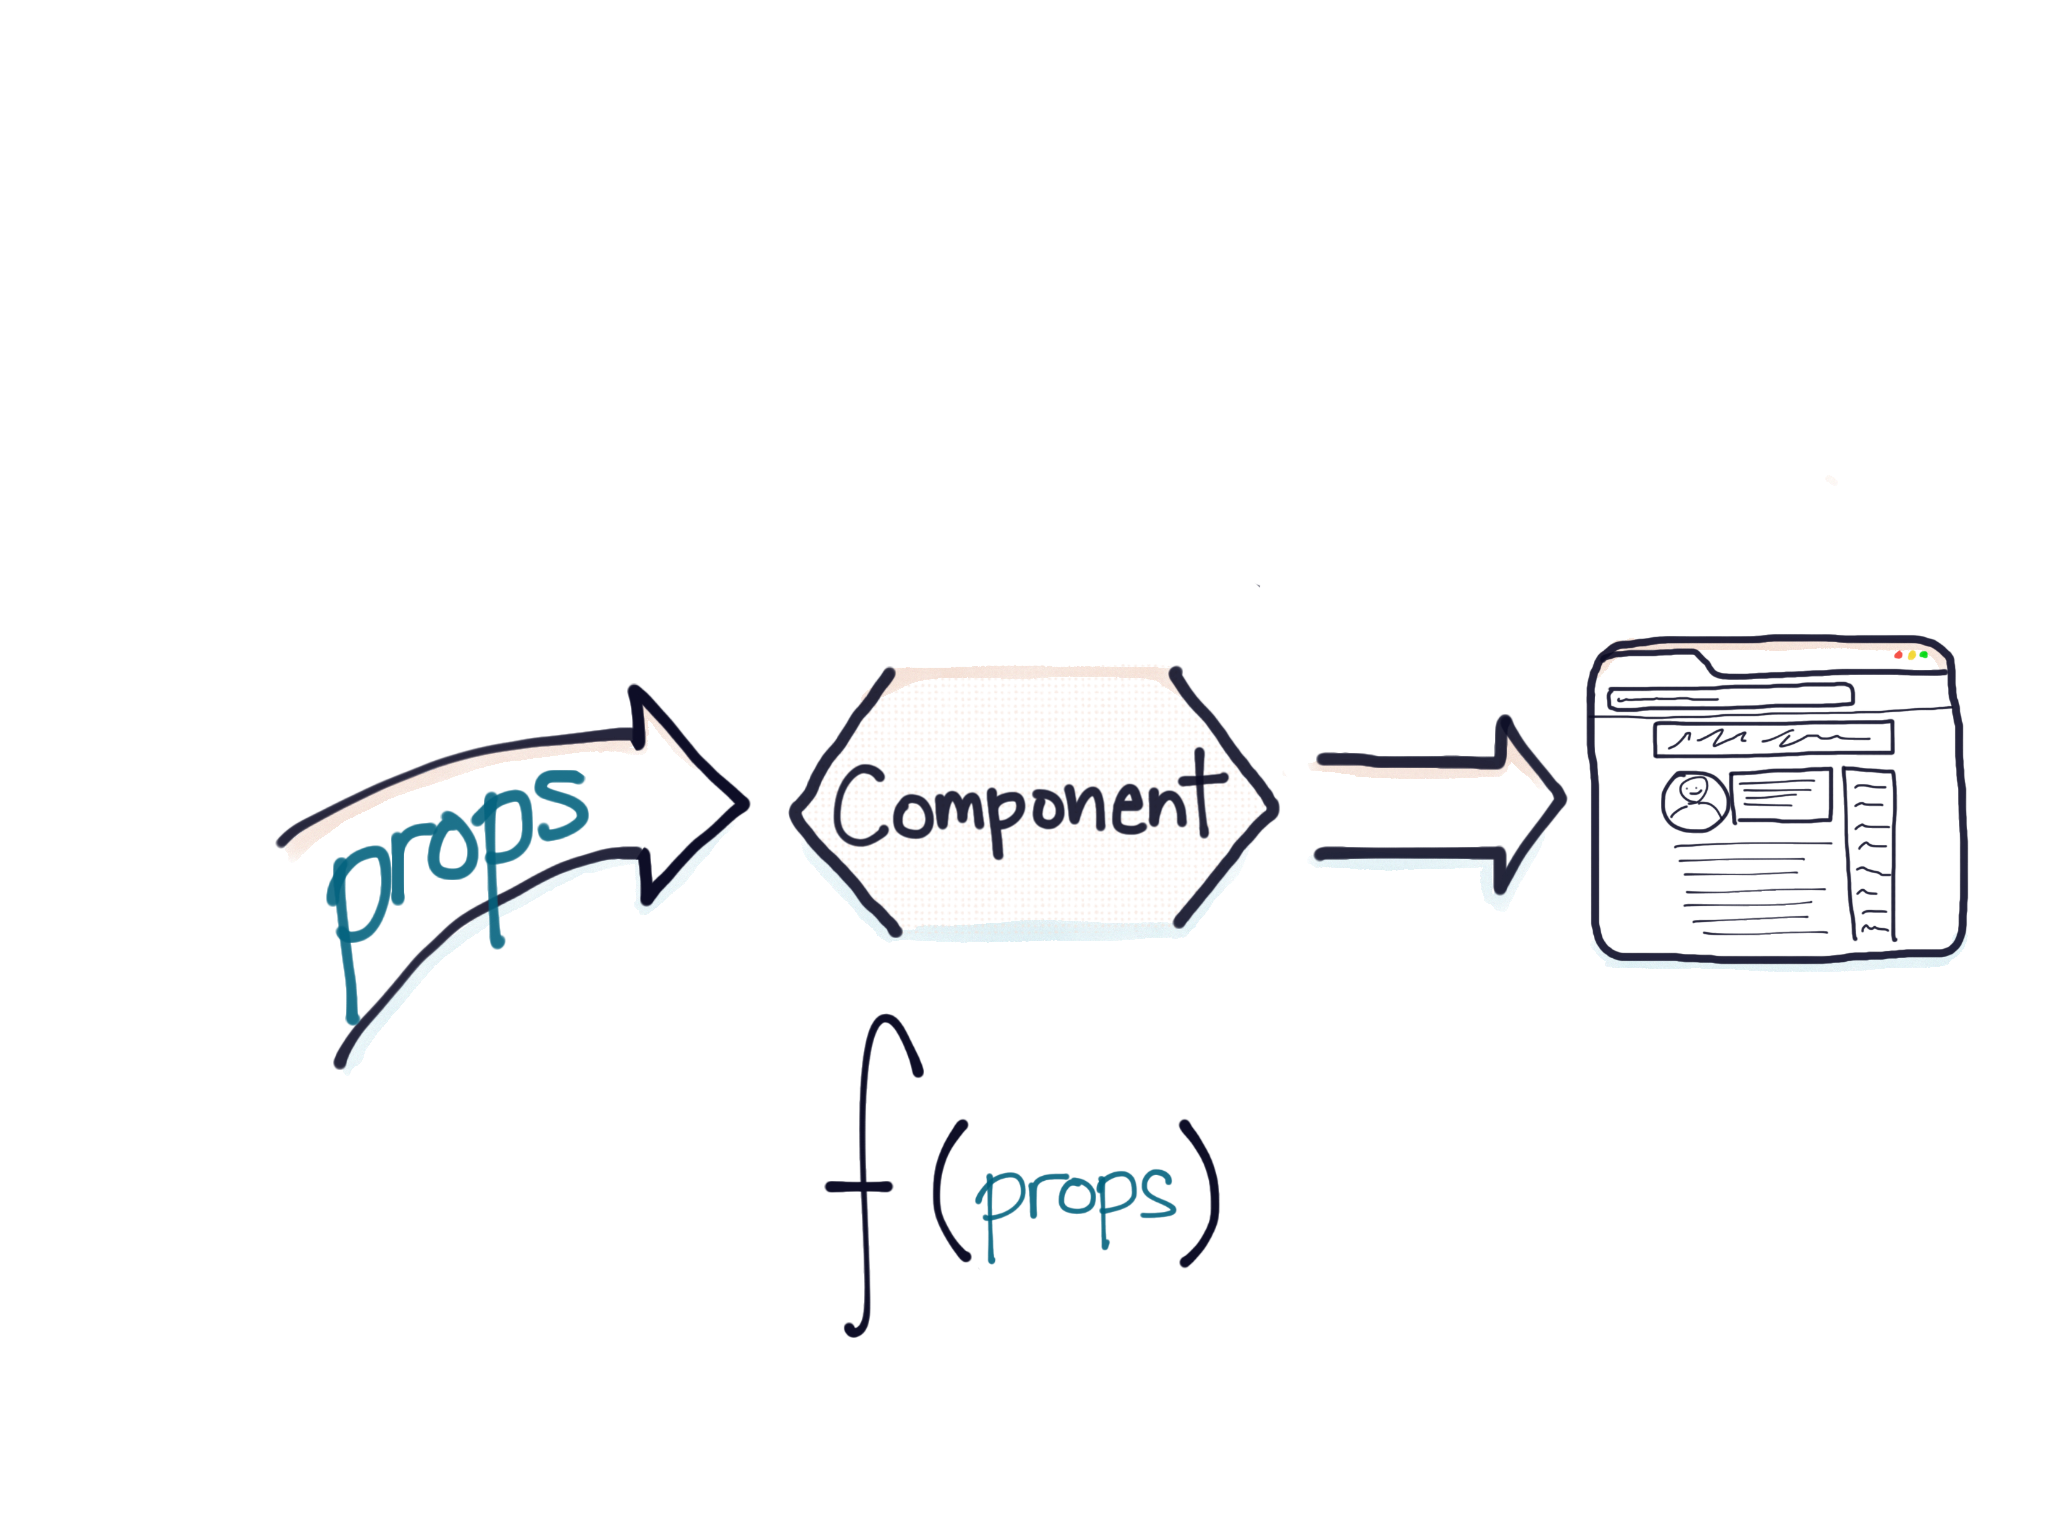 props
Component
f(props)